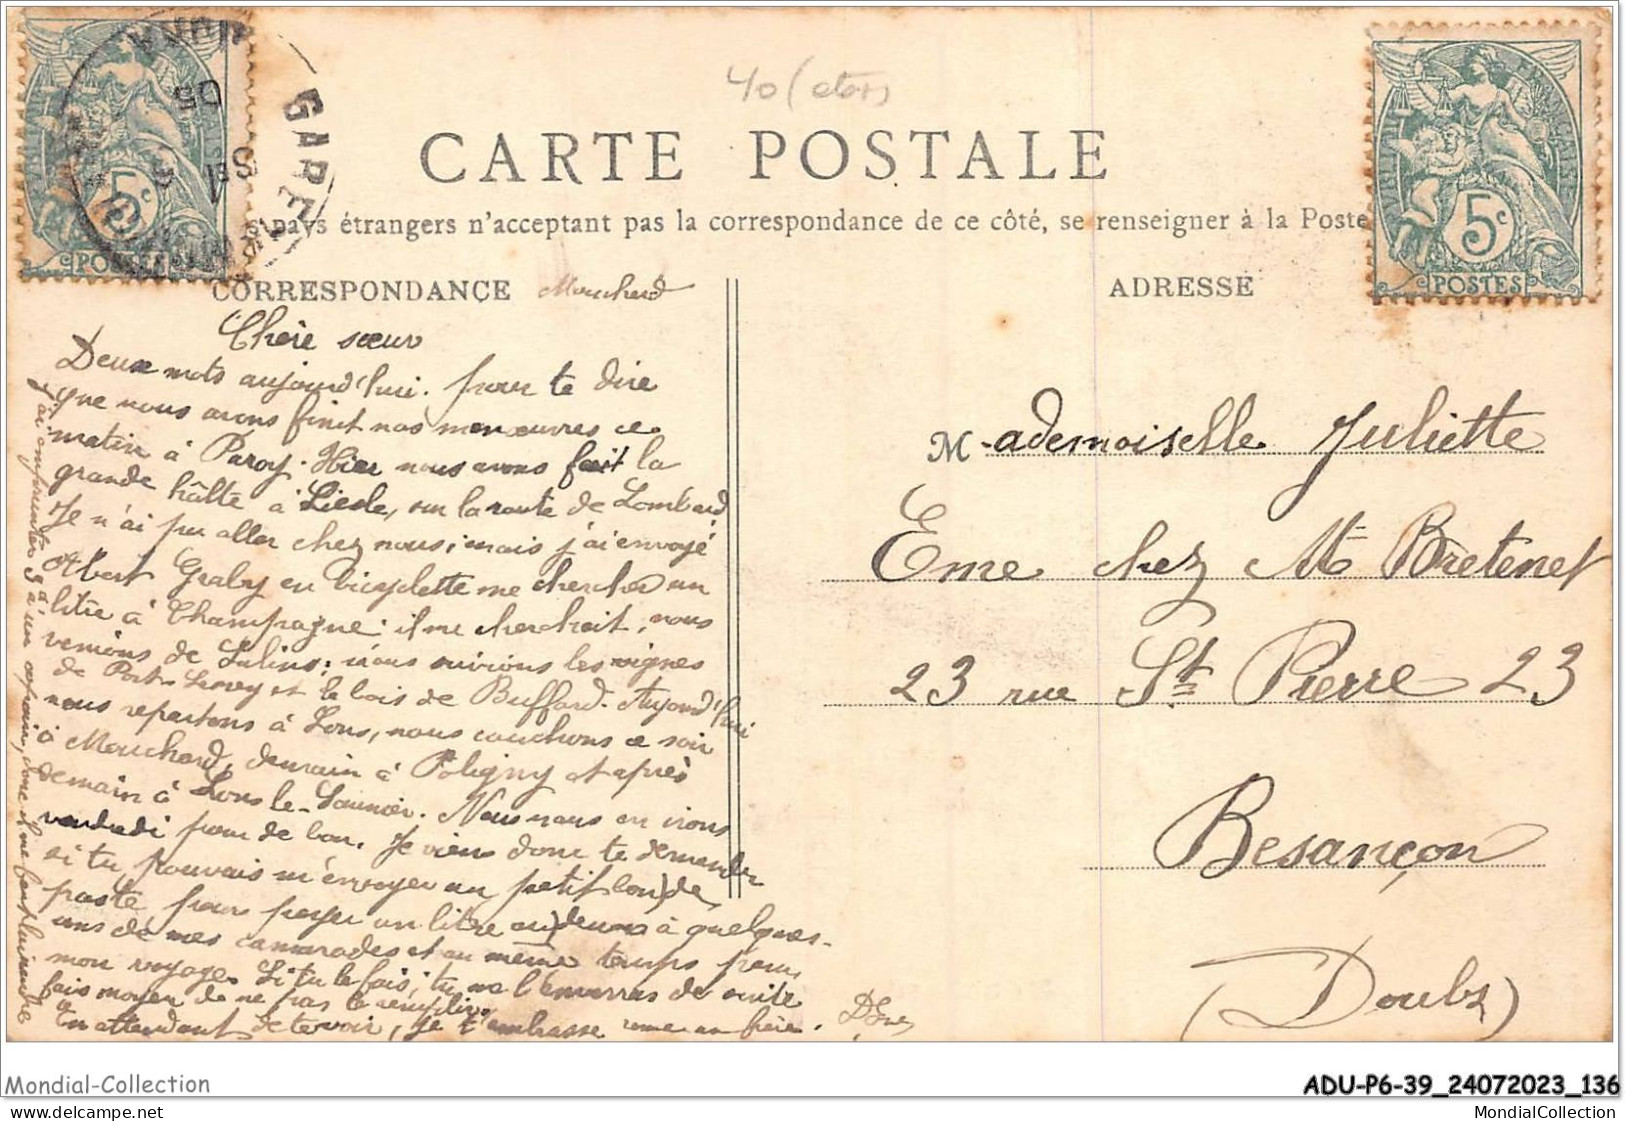 40 (
CARTE POSTALE
pays étrangers n'acceptant pas la correspondance de ce côté, se renseigner à la Poste
CORRESPONDANCE
Mouchard
ADRESSE
GARE
05
5c
POSTES
5c
POSTES
Chère sœur
Deux mots aujourd'hui. pour te dire
que nous avons finit nos manœuvres ce
matin à Paroy. Hier nous avons fait la
grande hâlte à Liesle, sur la route de Lombard
Je n'ai pu aller chez nous; mais j'ai envoyé
Albert Graby en bicyclette me chercher un
litre à Champagne; il me cherchait, nous
venions de Salins; nous suivions les vignes
de Port-Lesney et le bois de Buffard. Aujourd'hui
nous repartons à Lons, nous couchons ce soir
à Mouchard, demain à Poligny et après
demain à Lons le-Saunier. Nous nous en irons
vendredi pour de bon. Je viens donc te demander
si tu pouvais m'envoyer un petit bon de
poste pour payer un litre ou deux à quelques-
uns de mes camarades et au même temps pour
mon voyage. Si tu le fais, tu me l'enverras de suite
fais moyen de ne pas le remplir.
En attendant de te voir, je t'embrasse ton frère.
j'ai emprunté ça à un copain, donc il me faut lui rendre
M-ademoiselle Juliette
Eme chez Mt Bretenet
23 rue St. Pierre 23
Besançon
(Doubs)
Mondial-Collection
ADU-P6-39_24072023_136
This stamp is not part of the lot.
MondialCollection